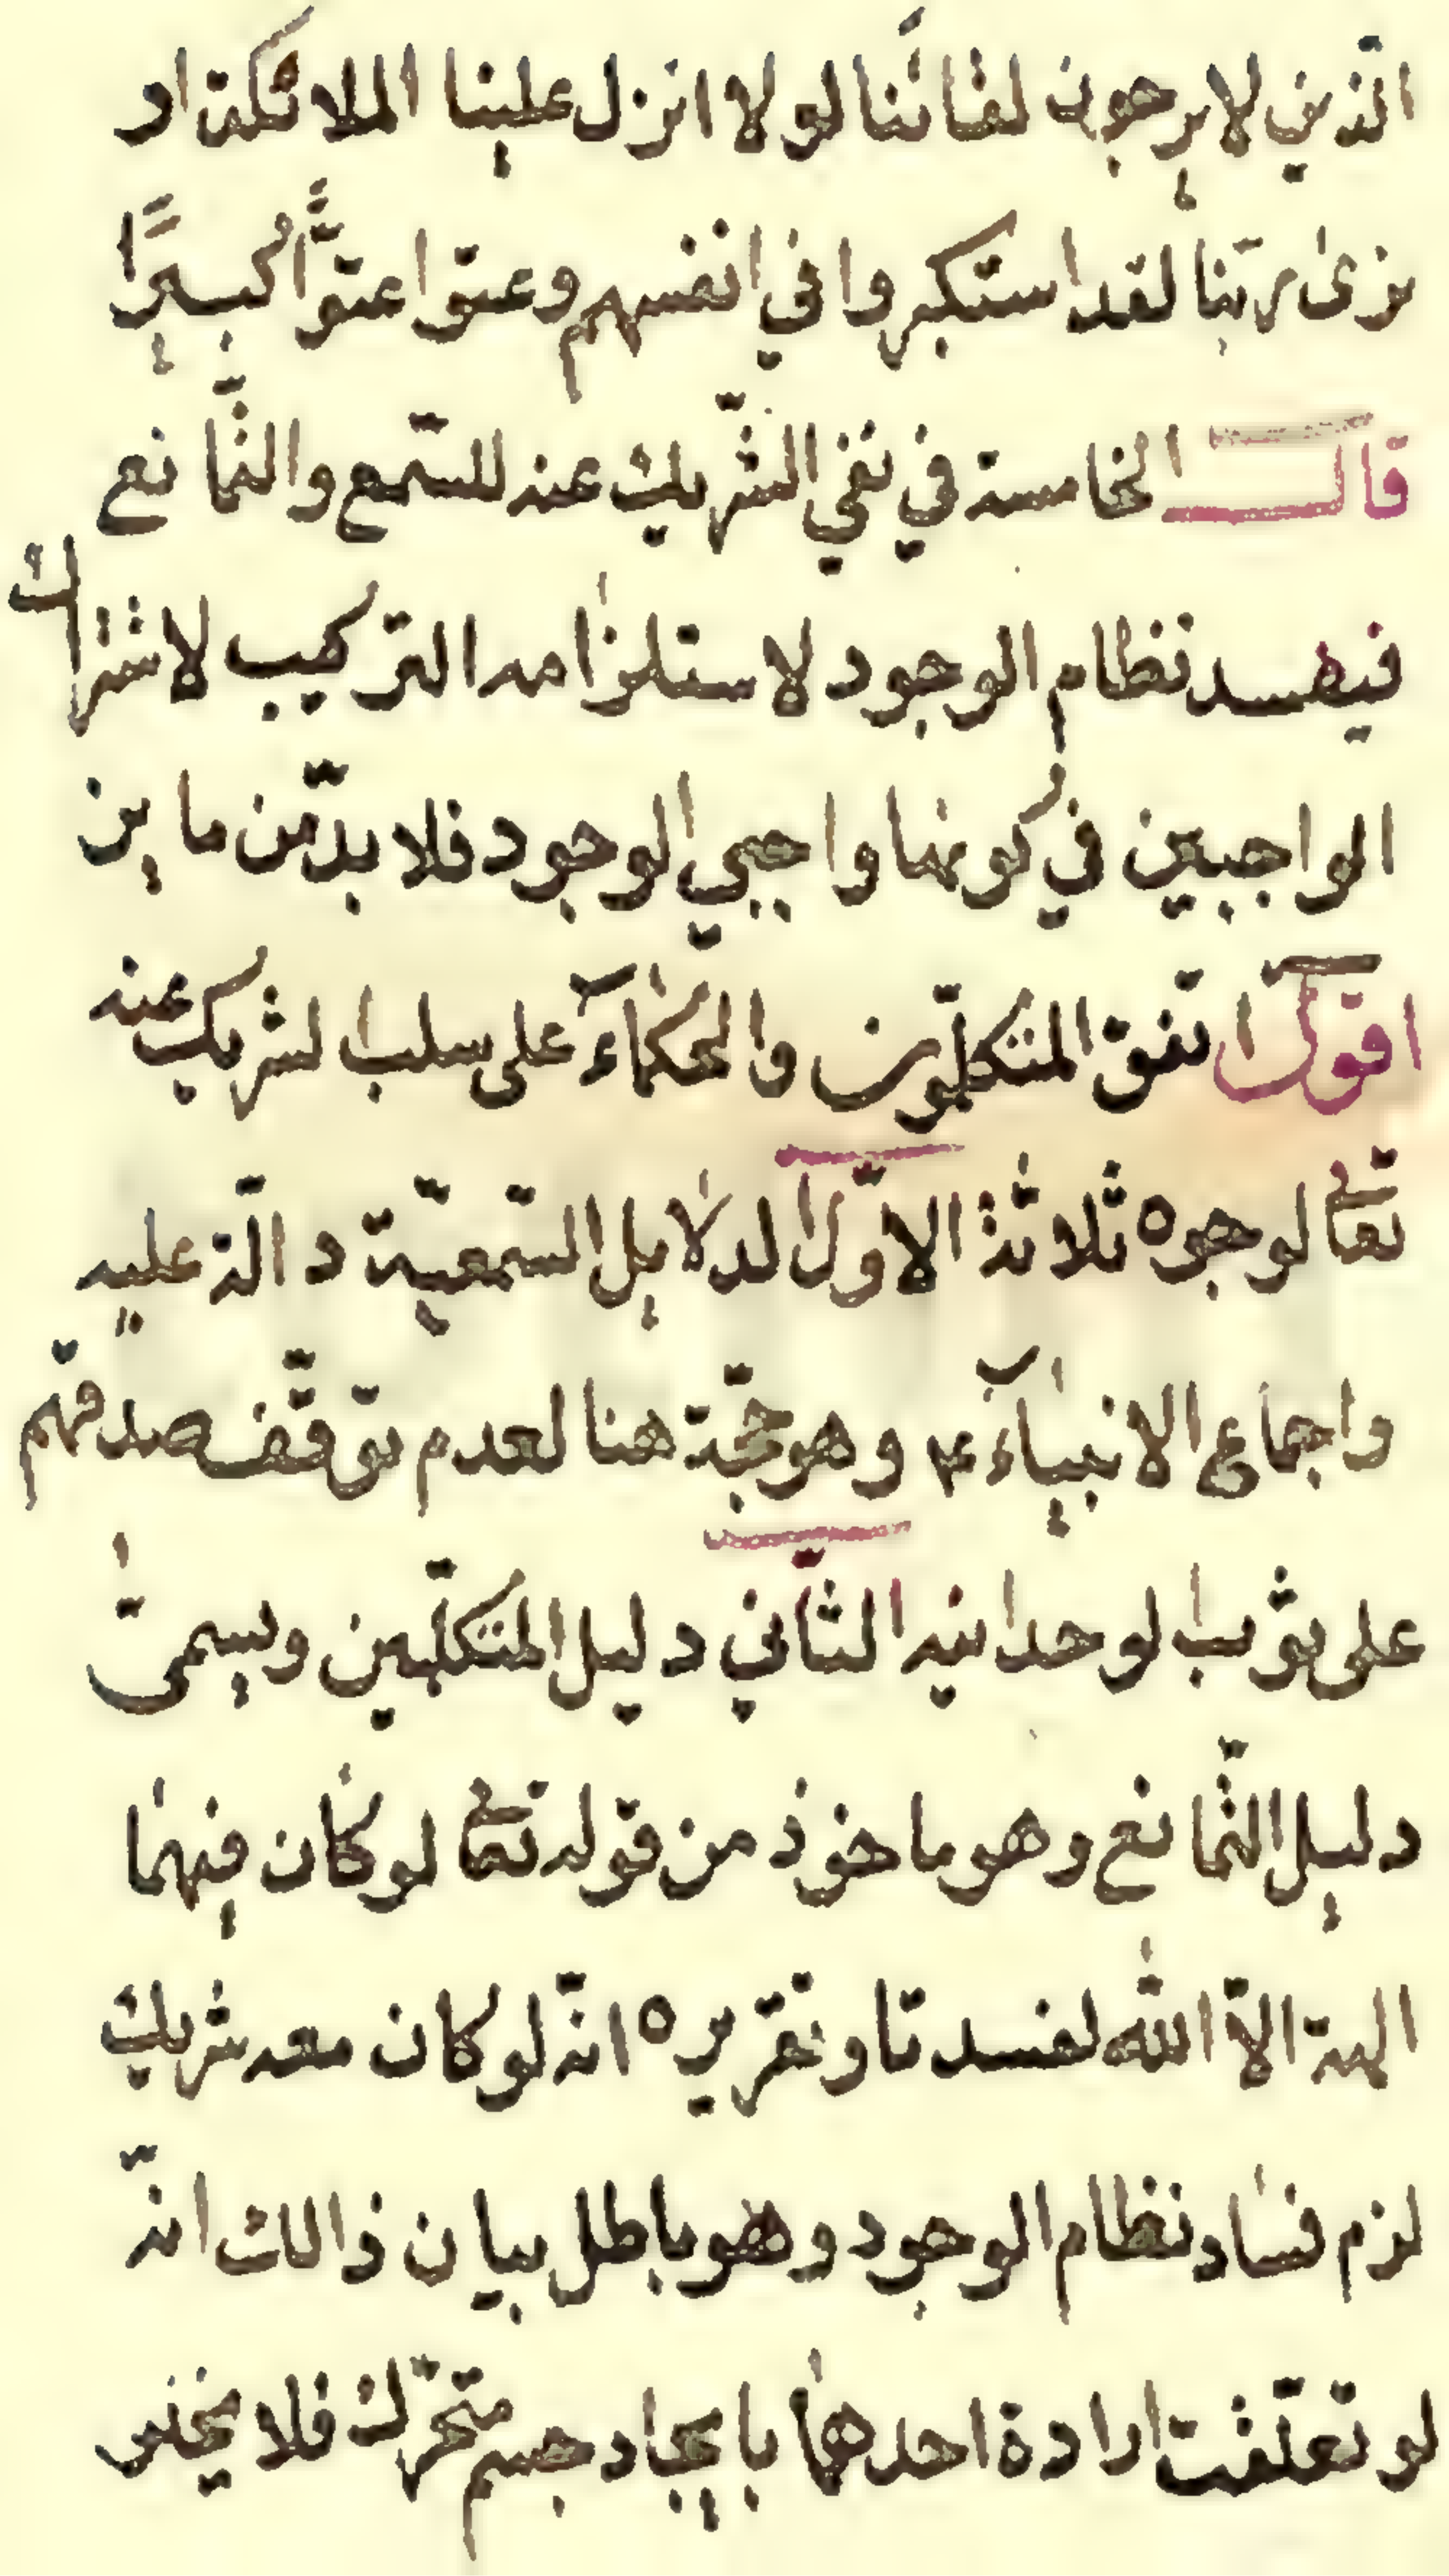 الّذين لا يرجون لقائَنا لو لا انزل علينا الملائكة او
نرىٰ ربّنا لقد استكبروا في انفسهم وعتوا عتوًّا كبيرًا
قال الخامسة في نفي الشّريك عنه للسّمع والتّمانع
فيفسد نظام الوجود لاستلزامه التّركيب لاشتراك
الواجبين في كونهما واجبي الوجود فلا بدّ من مايز
اقول اتّفق المتكلّمون والحكمآء على سلب الشريك عنه
تعالى لوجوه ثلاثة الاوّل الدلايل السّمعيّة دالّة عليه
واجماع الانبيآء ع وهو حجّة هنا لعدم توقّف صدقهم
على ثوب الوحدانيه الثّاني دليل المتكلّمين ويسمّى
دليل التّمانع وهو ماخوذ من قوله تعالى لو كان فيهما
الهة الّا اللّه لفسدتا وتقريره انّه لو كان معه شريك
لزم فساد نظام الوجود وهو باطل بيان ذالك انّه
لو تعلّقت ارادة احدهما بايجاد جسم متحرّك فلا يخلو